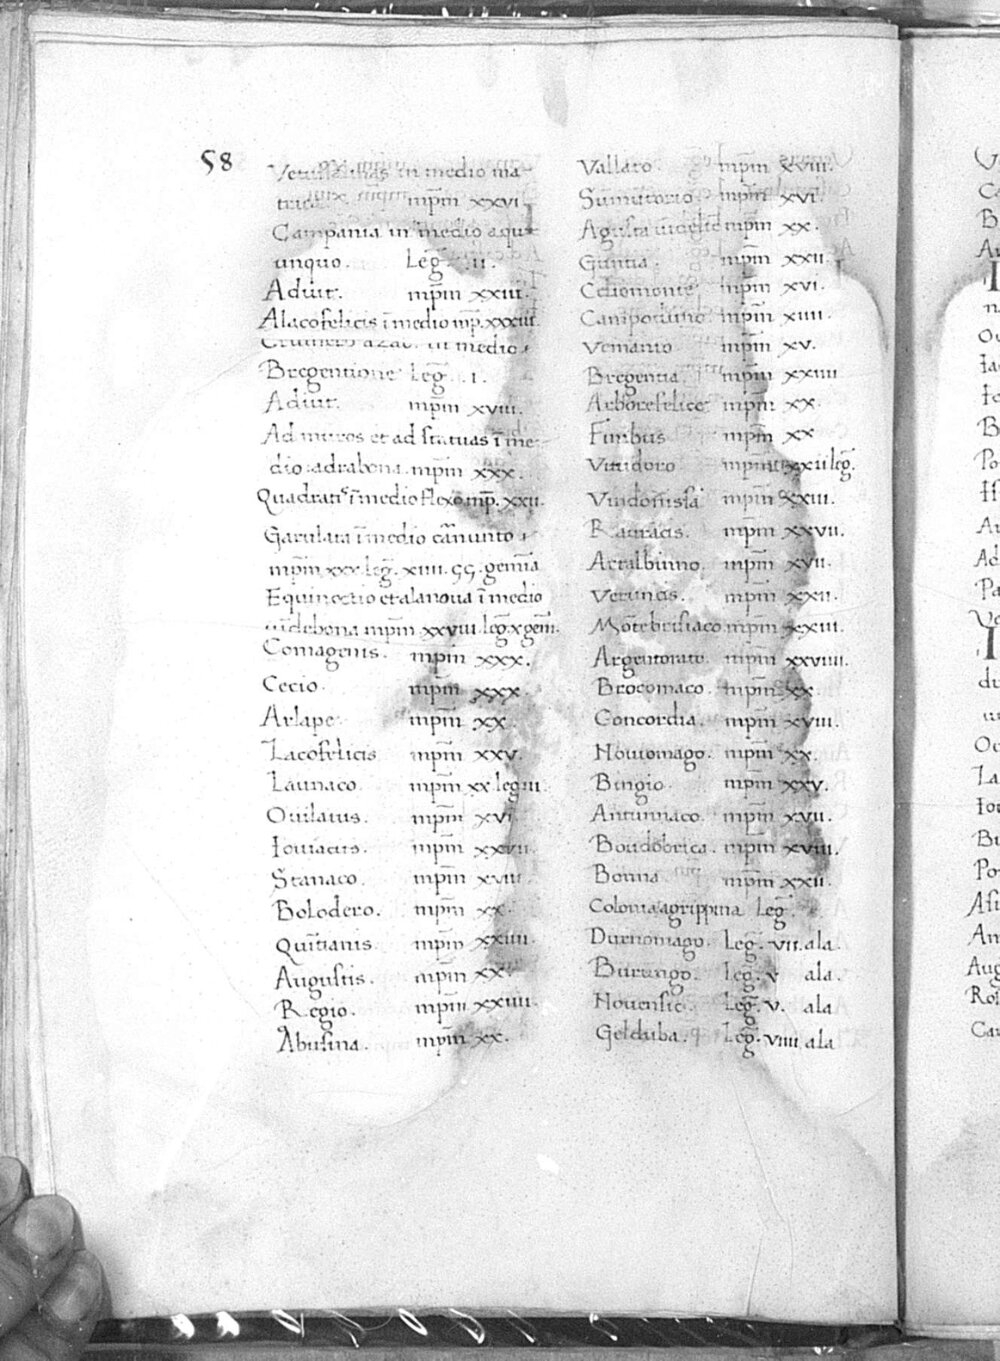 58
Vetussalinas in medio ma
trica mpm xxvi.
Campania in medio aqu
unquo. Leg. ii.
Adiut. mpm xxiii.
Alacofelicis i medio mp. xxxiii.
azao. in medio
Bregentione Leg. i.
Adiut. mpm xviii.
Ad muros et ad statuas i me
dio adrabona. mpm xxx.
Quadratis i medio flexo mp. xxii.
Gerulata i medio carnunto
mpm xxx. leg. xiiii. gg. gemia
Equinoctio et alanova i medio
uidebona mpm xxviii. leg x gem.
Comagenis. mpm xxx.
Cecio. mpm xxx.
Arlape mpm xx.
Lacofelicis mpm xxv.
Launaco. mpm xx. leg iii.
Ovilatus. mpm xvi
Iouiacus. mpm xxvii.
Stanaco. mpm xviii
Bolodero. mpm xx.
Quitianis. mpm xxiiii.
Augustis. mpm xx
Regio. mpm xxiiii.
Abusina. mpm xx.
Vallato. mpm xviii.
Sumutorio mpm xvi
Agusta uidelic mpm xx.
Guntia mpm xxii.
Celiomonte mpm xvi.
Campoduno mpm xiiii.
Vemanio mpm xv.
Bregentia. mpm xxiiii
Arborefelice mpm xx.
Finibus mpm xx
Vitudoro mpm xxii leg.
Vindonissa mpm xxiii.
Rauracis. mpm xxvii.
Artalbinno. mpm xvii.
Veruncis. mpm xxii.
Motebrisiaco mpm xxiii.
Argentorato mpm xxviiii.
Brocomaco. mpm xx.
Concordia. mpm xviii.
Nouiomago. mpm xx.
Bingio. mpm xxv.
Antunnaco. mpm xvii.
Boudobrica. mpm xviii.
Bonna mpm xxii.
Colonia agrippina Leg.
Durnomago. Leg. vii. ala.
Burungo. Leg. v ala.
Nouensie. Leg. v. ala
Gelduba. Leg. viiii ala